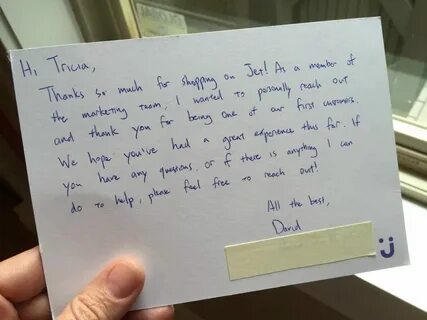 Hi Tricia,
Thanks so much for shopping on Jet! As a member of
the marketing team, I wanted to personally reach out
and thank you for being one of our first customers.
We hope you've had a great experience thus far. If
you have any questions, or if there is anything I can
do to help, please feel free to reach out!
All the best,
David